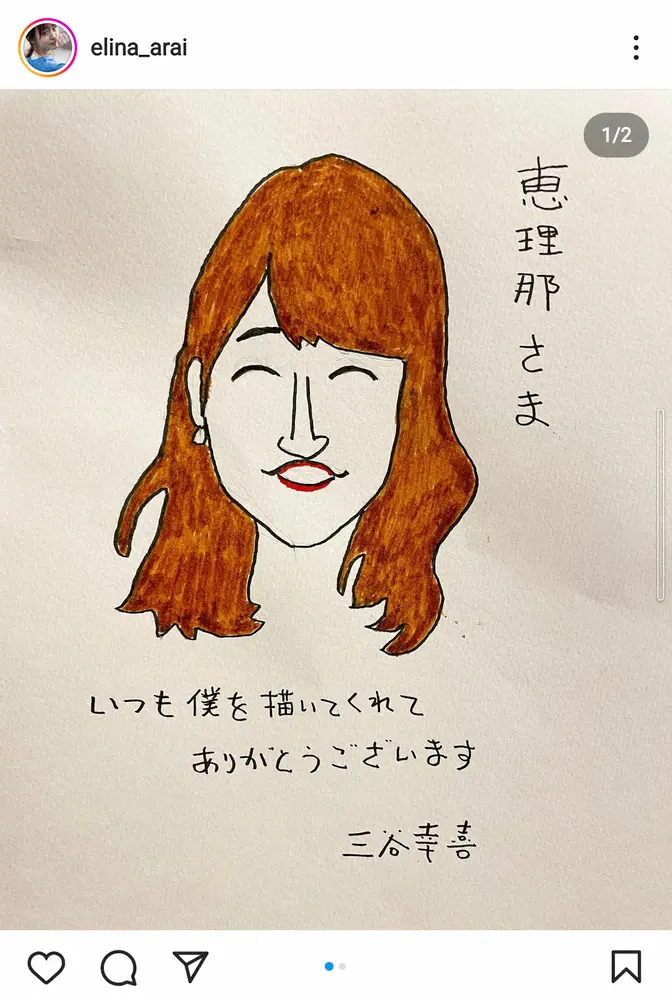 elina_arai
1/2
恵理那さま
いつも僕を描いてくれて
ありがとうございます
三谷幸喜